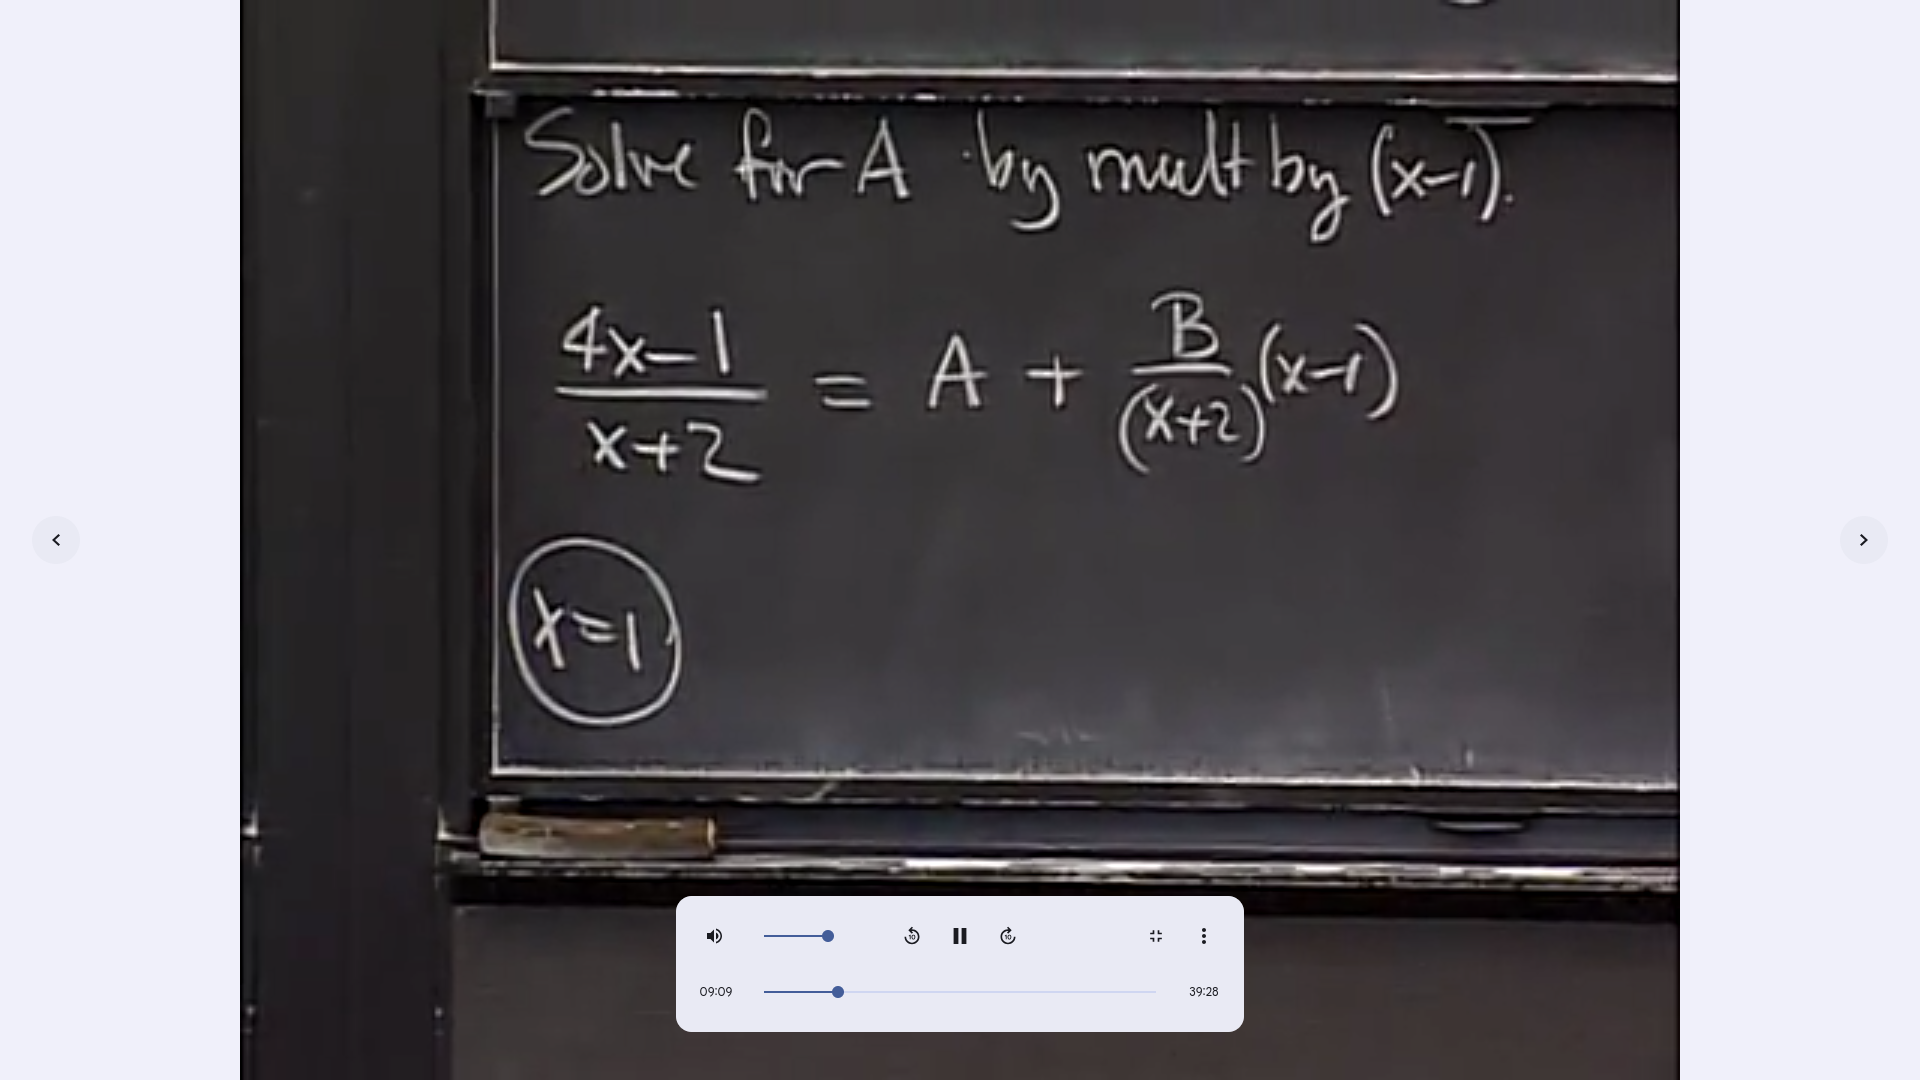 Solve for A by mult by (x-1).
4x-1
x+2
= A +
B
(x+2)
(x-1)
x=1
10
10
09:09
39:28